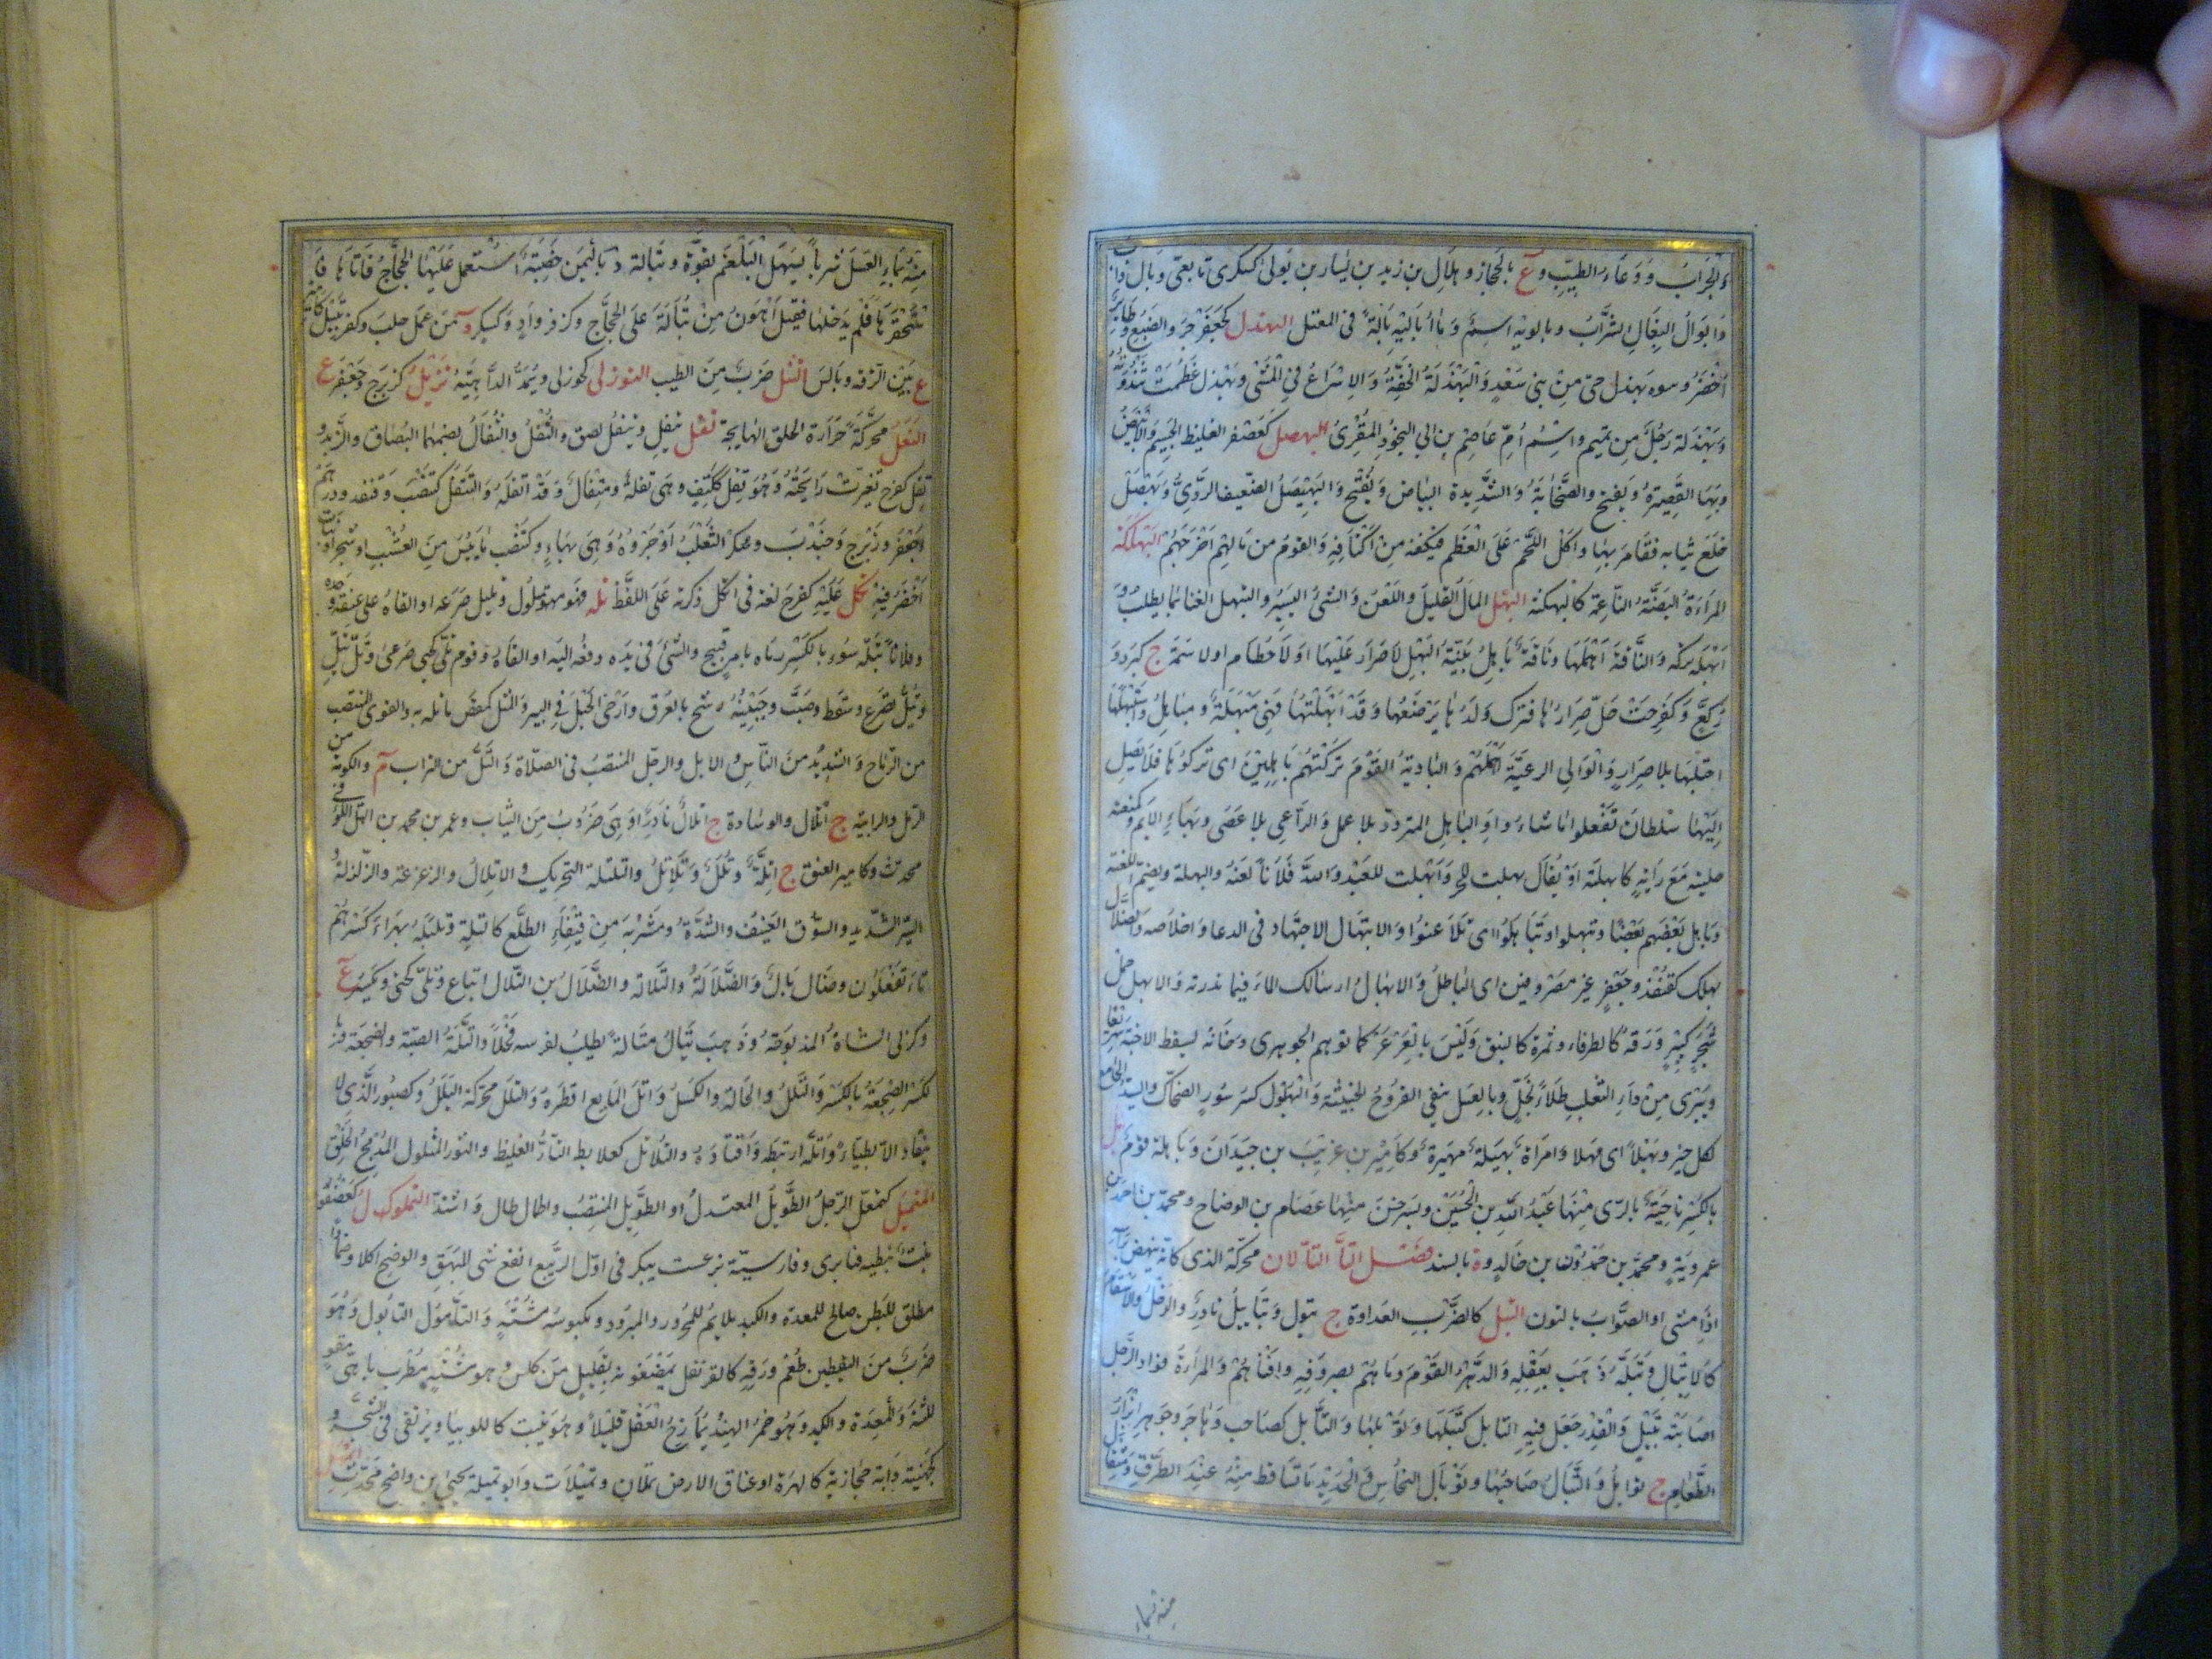 والجراب ووعاء الطيب و ع بالحجاز وهلال بن زيد بن يسار بن بولى كسكرى تابعى وبال ذاب
وابوال البغال السراب وبالويه اسم وما اباليه بالة فى المعتل البهدل كجعفر جرو الضبع وطائر
اخضر وبنو بهدل حى من بنى سعد والبهدلة الخفة والاسراع فى المشى وبهدل عظمت ثندوته
وبهدلة رجل من تميم واسم ام عاصم بن ابى النجود المقرئ البهصل كعصفر الغليظ الجسيم والابيض
وبهاء القصيرة ويفتح والصخابة والشديدة البياض ويفتح والبهيصل الضعيف الردى وبهصل
خلع ثيابه فقامر بها واكل اللحم على العظم فيكفه من اكنافه والقوم من مالهم اخرجهم البهلكة
المراة البضة الناعمة كالبهكنة البهل المال القليل واللعن والشئ اليسير والتبهل العنا بما يطلب و
ابهله تركه والناقة اهملها وناقة باهل بينة البهل لا صرار عليها او لا خطام او لا سمة ج كبرد و
ركع وكفرحت حل صرارها فترك ولدها يرضعها وقد ابهلتها فهى مبهلة ومباهل واستبهلها
احتلبها بلا صرار والوالى الرعية اهملهم والبادية القوم تركتهم باهلين اى تركوها فلا يصل
اليها سلطان تفعلوا ما شاءوا والباهل المتردد بلا عمل والراعى بلا عصى وبهاء الايم وكمنعه
خليته مع رايه كابهلته او يقال بهلت للحر وابهلت للعبد والله فلانا لعنه والبهلة ويضم اللعنة
وباهل بعضهم بعضا وتبهلوا وتباهلوا اى تلاعنوا والابتهال الاجتهاد فى الدعا واخلاصه والضلال
بهلل كقنفذ وجعفر غير مصروفين اى الباطل والابهال ارسالك الماء فيما بذرته والابهل حمل
شجر كبير ورقه كالطرفاء وثمره كالنبق وليس بالعرعر كما توهم الجوهرى دخانه يسقط الاجنة سريعا
ويبرى من داء الثعلب طلاء بخل وبالعسل ينقى القروح الخبيثة والبهلول كسرسور الضحاك والسيد الجامع
لكل خير وبهلا اى مهلا وامراة بهيلة مهيرة وكامير بن عريب بن حيدان وباهلة قوم بل
بالكسر ناحية بالرى منها عبد الله بن الحسين وبسرخس منها عصام بن الوضاح ومحمد بن احمد بن
عمرويه ومحمد بن حمدون بن خالد و ة بالسند فصل التا التالان محركة الذى كانه ينهض براسه
اذا مشى او الصواب بالنون التبل كالضرب العداوة ج تبول وتبابيل نادر والذحل والاسقام
كالاتبال وتبله ذهب بعقله والدهر القوم رماهم بصروفه وافناهم والمراة فواد الرجل
اصابته بتبل والقدر جعل فيه التابل كتبلها وتوبلها والتابل كصاحب وهاجر وجوهر ابزار
الطعام ج توابل والتبال صاحبها وتوبال النحاس والحديد ما تساقط منه عند الطرق ومثقال
منه بماء
منه بماء العسل شربا يسهل البلغم بقوة وتبالة د باليمن خصبة استعمل عليها الحجاج فاتاها فا
ستحقرها فلم يدخلها فقيل اهون من تبالة على الحجاج وكزفر واد وكسكر د من عمل حلب وكفر تبيل كامير
ع بين الرقة وبالس التتل ضرب من الطيب التوزلى كخوزلى ويمد الداهية تزبل كزبرج وجعفر ع
التعل محركة حرارة الحلق الهايجة تفل يتفل ويتفل بصق والتفل والتفال بضمهما البصاق والزبد و
تفل كفرح تغيرت رايحته وهو تفل ككتف وهى تفلة ومتفال وقد اتفله والتتفل كتنضب وقنفذ ودرهم
وجعفر وزبرج وجندب وسكر الثعلب او جروه وهى بهاء وكتنضب ما يبس من العشب او شجر او نبات
اخضر فيه تكل عليه كفرح لغة فى اتكل ذكرته على اللفظ تله فهو متلول وتليل صرعه او القاه على عنقه وخده
وفلانا بتلة سوء بالكسر رماه بامر قبيح والشئ فى يده دفعه اليه او القاه وقوم تلى كحتى صرعى وتل يتل
ويتل تصرع وسقط وصب وجبينه رشح بالعرق وارخى الحبل فى البير والمتل كمقص ما تله به والقوى المنتصب
من الرماح والشديد من الناس والابل والرجل المنتصب فى الصلاة والتل من التراب م والكومة من
الرمل والرابية ج اتلال والوسادة ج اتلال نادر او هى ضروب من الثياب وعمر بن محمد بن التل الكوفى
محدث وكامير العنق ج اتلة وتلل وتلاتل والتلتلة التحريك والاتلال والزعزعة والزلزلة و
السير الشديد والسوق العنيف والشدة ومشربة من قيقاء الطلع كالتلة وتلتلة بهراء كسرهم
تاء تفعلون وضال تال والضلالة والتلالة والضلال بن التلال اتباع وتلى كحتى ويكسر ع
وكربى الشاة المذبوحة وذهب يتال متالة يطلب لفرسه فحلا والتلة الصبة والضجعة و
بالكسر الضجعة بالكسر والتلل والحالة والكسل واتل المايع اقطره والتلل محركة البلل وكصبور الذى لا
ينقاد الا بطيا واتله ارتبطه واقتاده والتلاتل كعلابط التار الغليظ والثور المتلول المدمج الخلق
المتمئل كمشمعل الرجل الطويل المعتدل او الطويل المنتصب واتمال طال واشتد التملول كعصفور
نبت نبطيه قنابرى وفارسيه برغست يبكر فى اول الربيع انفع شى للبهق والوضح اكلا وضمادا
مطلق للبطن صالح للمعدة والكبد يلايم للمحرور والمبرود ومكبوسه مشه والتامول التانبول وهو
ضرب من اليقطين طعم ورقه كالقرنفل يمضغونه بقليل من كلس وهو مشه مطرب باهى مقو
للثة والمعدة والكبد وهو خمر الهند يمازج العقل قليلا وهو ينبت كاللوبيا ويرتقى فى الشجر و
كجهينة دابة حجازية كالهرة او عناق الارض تملان وتميلات وابو تميلة يحيى بن واضح محدث